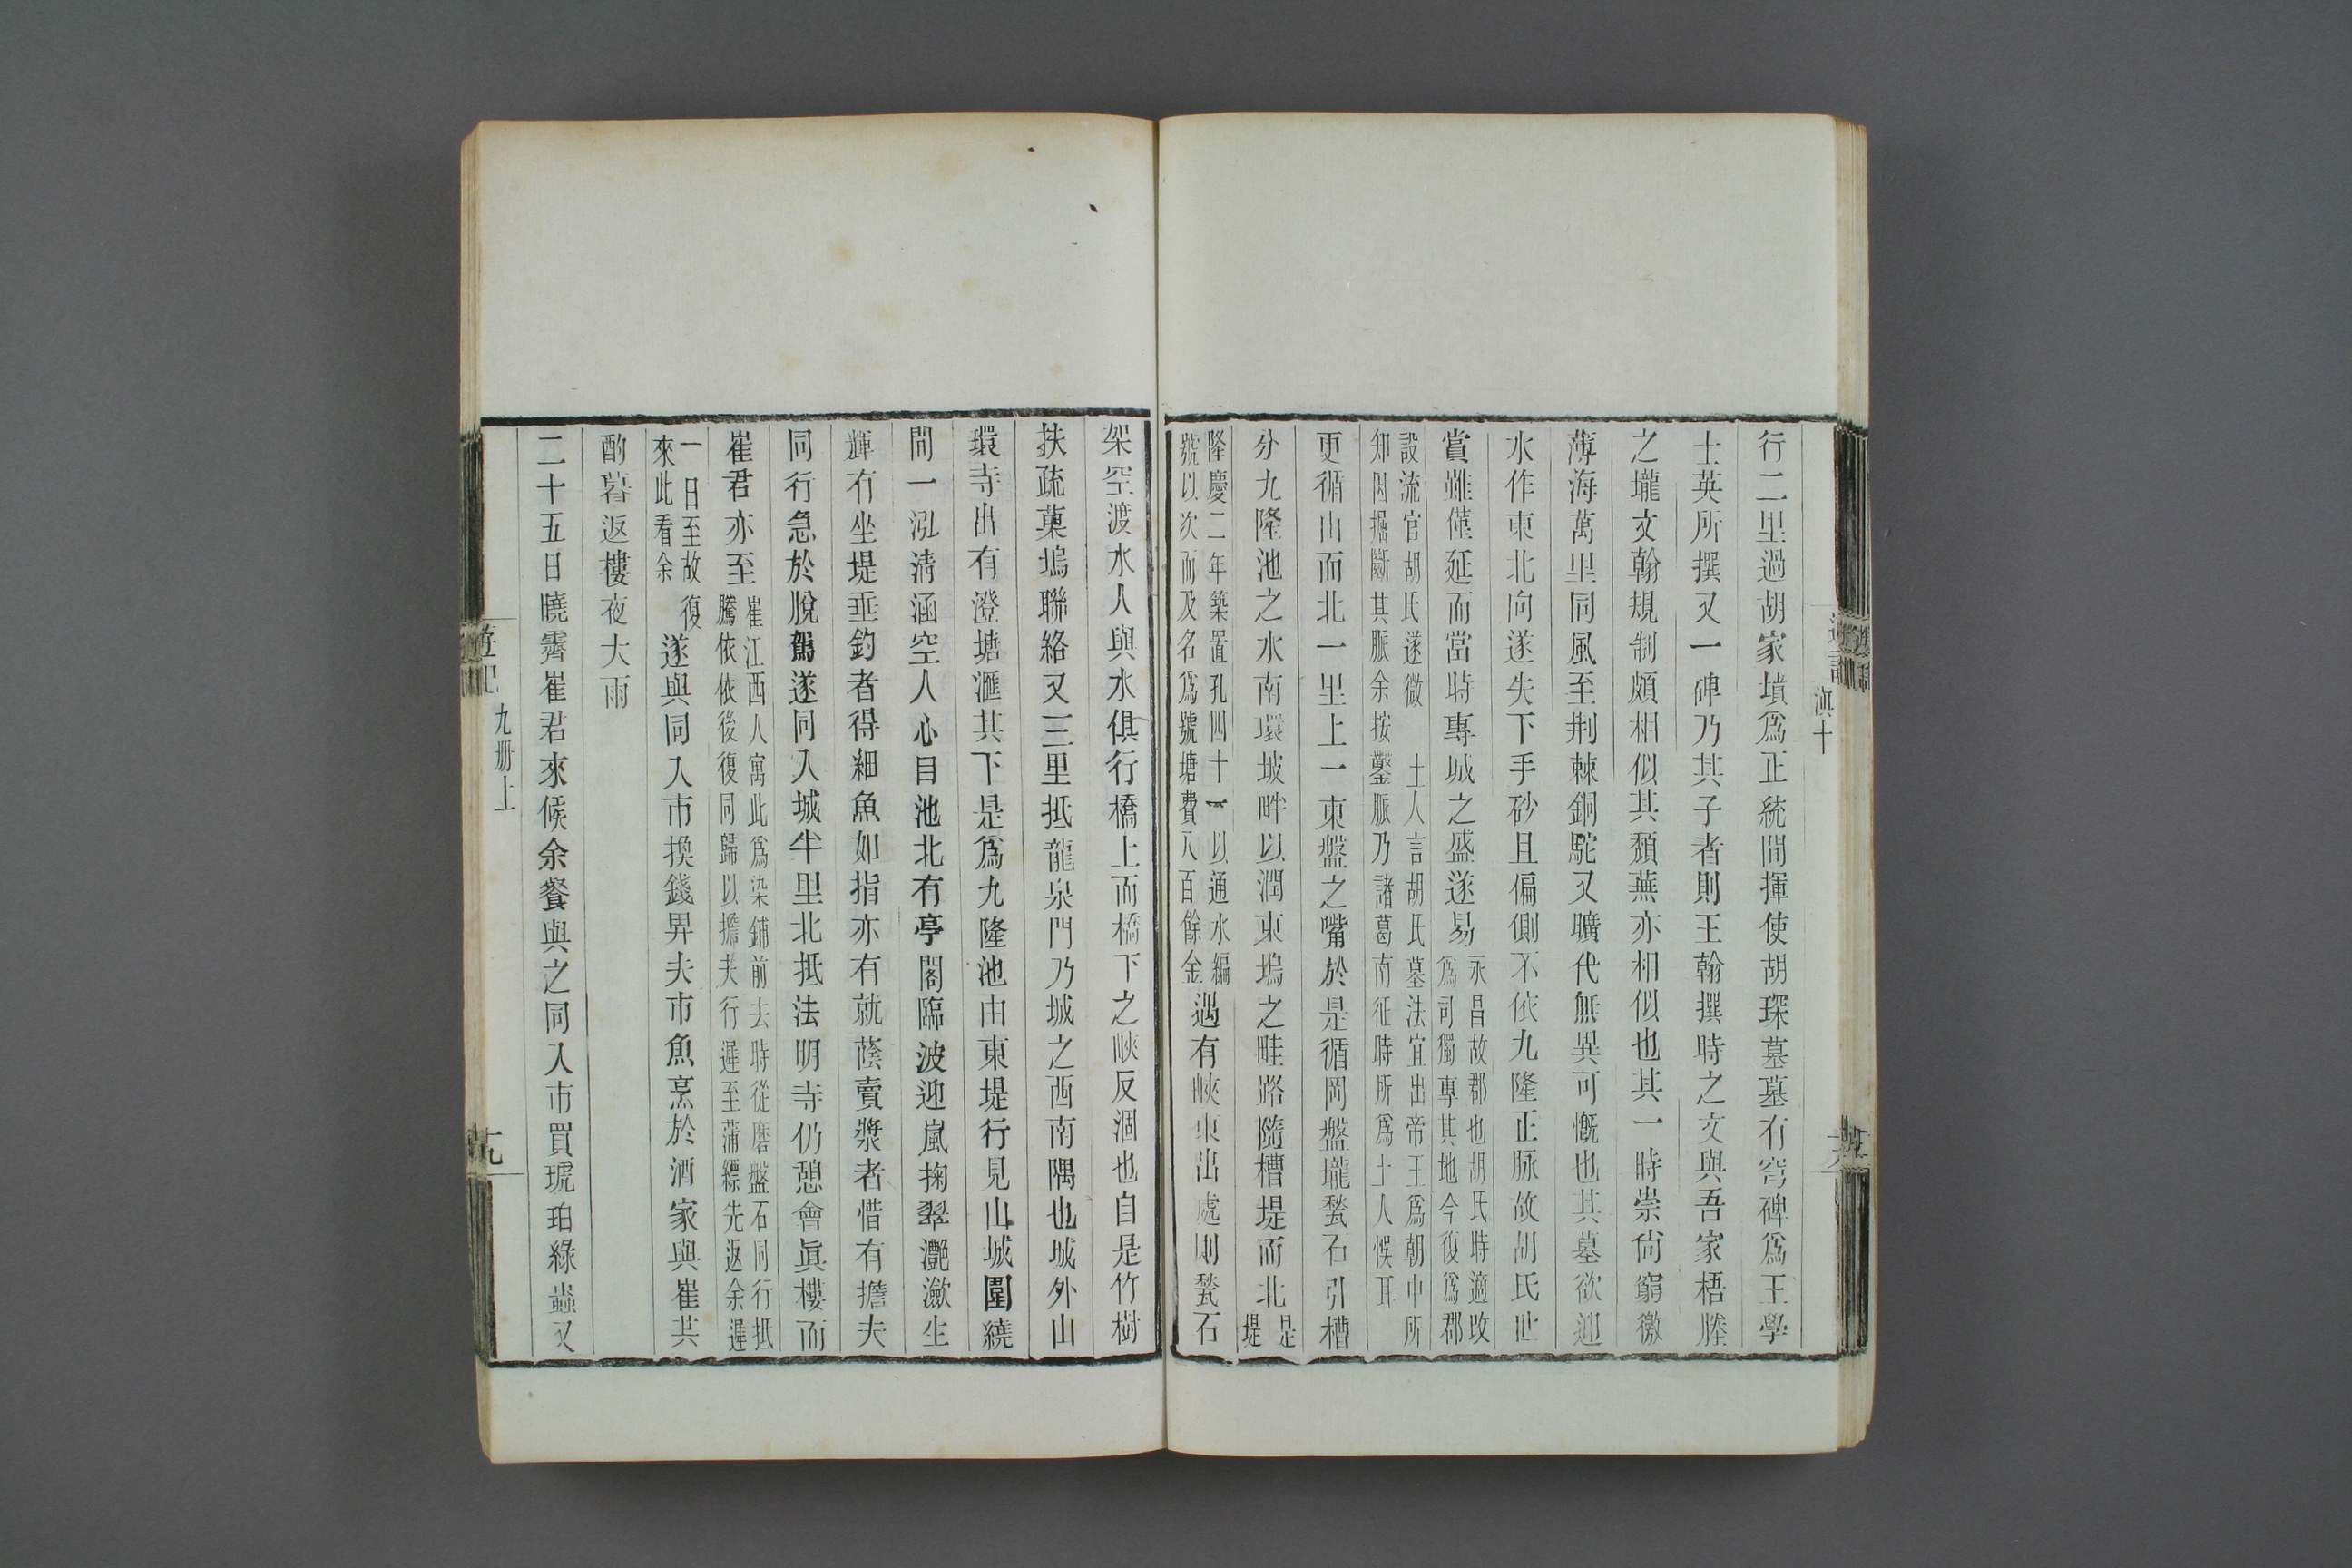 滇十
行二里過胡家墳爲正統間揮使胡琛墓墓有穹碑爲王學
士英所撰又一碑乃其子者則王翰撰時之文與吾家梧塍
之壠文翰規制頗相似其頹蕪亦相似也其一時崇尚窮徼
薄海萬里同風至荆棘銅駝又曠代無異可慨也其墓欲迎
水作東北向遂失下手砂且偏側不依九隆正脉故胡氏世
賞雖僅延而當時專城之盛遂易永昌故郡也胡氏時適改
爲司獨專其地今復爲郡
設流官胡氏遂微 土人言胡氏墓法宜出帝王爲朝中所
知因掘斷其脈余按鑿脈乃諸葛南征時所爲土人悞耳
更循山而北一里上一東盤之嘴於是循岡盤壠甃石引槽
分九隆池之水南環坡畔以潤東塢之畦路隨槽堤而北是
堤
隆慶二年築置孔四十一以通水編
號以次而及名爲號塘費八百餘金遇有峽東出處則甃石
架空渡水人與水俱行橋上而橋下之峽反涸也自是竹樹
扶疏菓塢聯絡又三里抵龍泉門乃城之西南隅也城外山
環寺出有澄塘滙其下是爲九隆池由東堤行見山城圍繞
間一泓清涵空人心目池北有亭閣臨波迎嵐掬翠灔瀲生
輝有坐堤垂釣者得細魚如指亦有就蔭賣漿者惜有擔夫
同行急於脫駕遂同入城半里北抵法明寺仍憩會眞樓而
崔君亦至崔江西人寓此爲染鋪前去時從磨盤石同行抵
騰依依後復同歸以擔夫行遲至蒲縹先返余遲
一日至故復
來此看余遂與同入市換錢畀夫市魚烹於酒家與崔共
酌暮返樓夜大雨
二十五日曉霽崔君來候余餐與之同入市買琥珀綠蟲又
遊記
九册上
十九